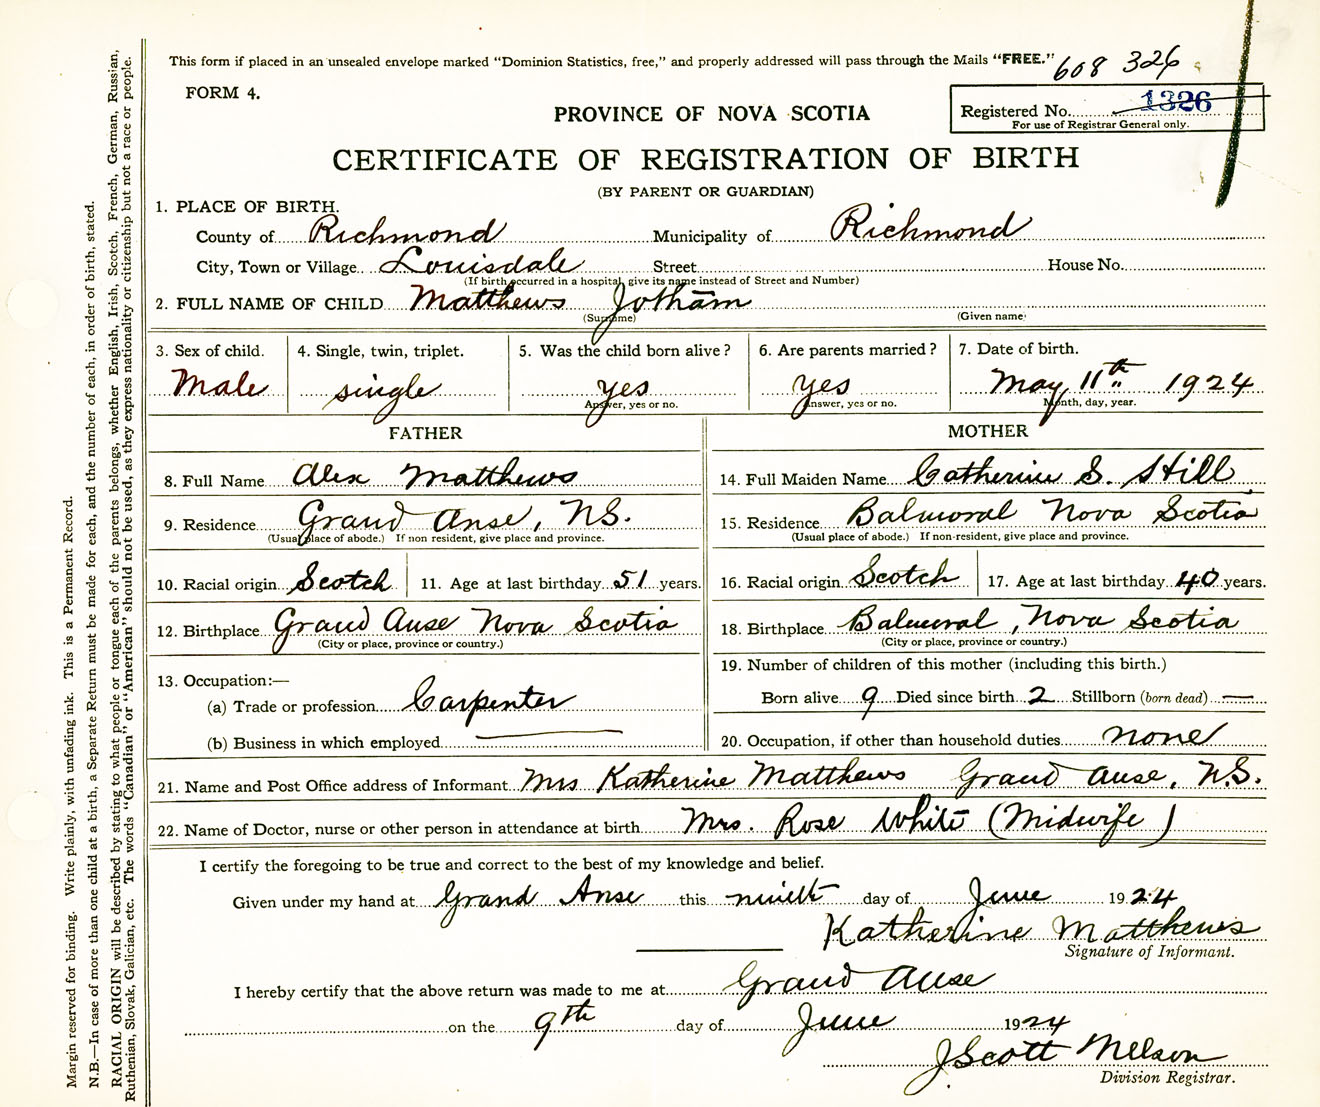 This form if placed in an unsealed envelope marked “Dominion Statistics, free,” and properly addressed will pass through the Mails “FREE.”
608 326
FORM 4.
Registered No. 1326
For use of Registrar General only.
PROVINCE OF NOVA SCOTIA
CERTIFICATE OF REGISTRATION OF BIRTH
(BY PARENT OR GUARDIAN)
1. PLACE OF BIRTH.
County of Richmond Municipality of Richmond
City, Town or Village Louisdale Street House No.
(If birth occurred in a hospital, give its name instead of Street and Number)
2. FULL NAME OF CHILD Matthews Jotham
(Surname) (Given name)
3. Sex of child. 4. Single, twin, triplet. 5. Was the child born alive? 6. Are parents married? 7. Date of birth.
Male single yes yes May 11th 1924
Answer, yes or no. Answer, yes or no. Month, day, year.
FATHER MOTHER
8. Full Name Alex Matthews 14. Full Maiden Name Catherine S. Hill
9. Residence Grand Anse, N.S. 15. Residence Balmoral Nova Scotia
(Usual place of abode.) If non resident, give place and province. (Usual place of abode.) If non-resident, give place and province.
10. Racial origin Scotch 11. Age at last birthday 51 years. 16. Racial origin Scotch 17. Age at last birthday 40 years.
12. Birthplace Grand Anse Nova Scotia 18. Birthplace Balmoral, Nova Scotia
(City or place, province or country.) (City or place, province or country.)
19. Number of children of this mother (including this birth.)
13. Occupation:—
(a) Trade or profession Carpenter Born alive 9 Died since birth 2 Stillborn (born dead) —
(b) Business in which employed — 20. Occupation, if other than household duties none
21. Name and Post Office address of Informant Mrs Katherine Matthews Grand Anse, N.S.
22. Name of Doctor, nurse or other person in attendance at birth Mrs. Rose White (Midwife)
I certify the foregoing to be true and correct to the best of my knowledge and belief.
Given under my hand at Grand Anse this ninth day of June 1924
Katherine Matthews
Signature of Informant.
I hereby certify that the above return was made to me at Grand Anse
on the 9th day of June 1924
J. Scott Nelson
Division Registrar.
Margin reserved for binding. Write plainly, with unfading ink. This is a Permanent Record.
N.B.—In case of more than one child at a birth, a Separate Return must be made for each, and the number of each, in order of birth, stated.
RACIAL ORIGIN will be described by stating to what people or tongue each of the parents belongs, whether English, Irish, Scotch, French, German, Russian,
Ruthenian, Slovak, Galician, etc. The words “Canadian” or “American” should not be used, as they express nationality or citizenship but not a race or people.